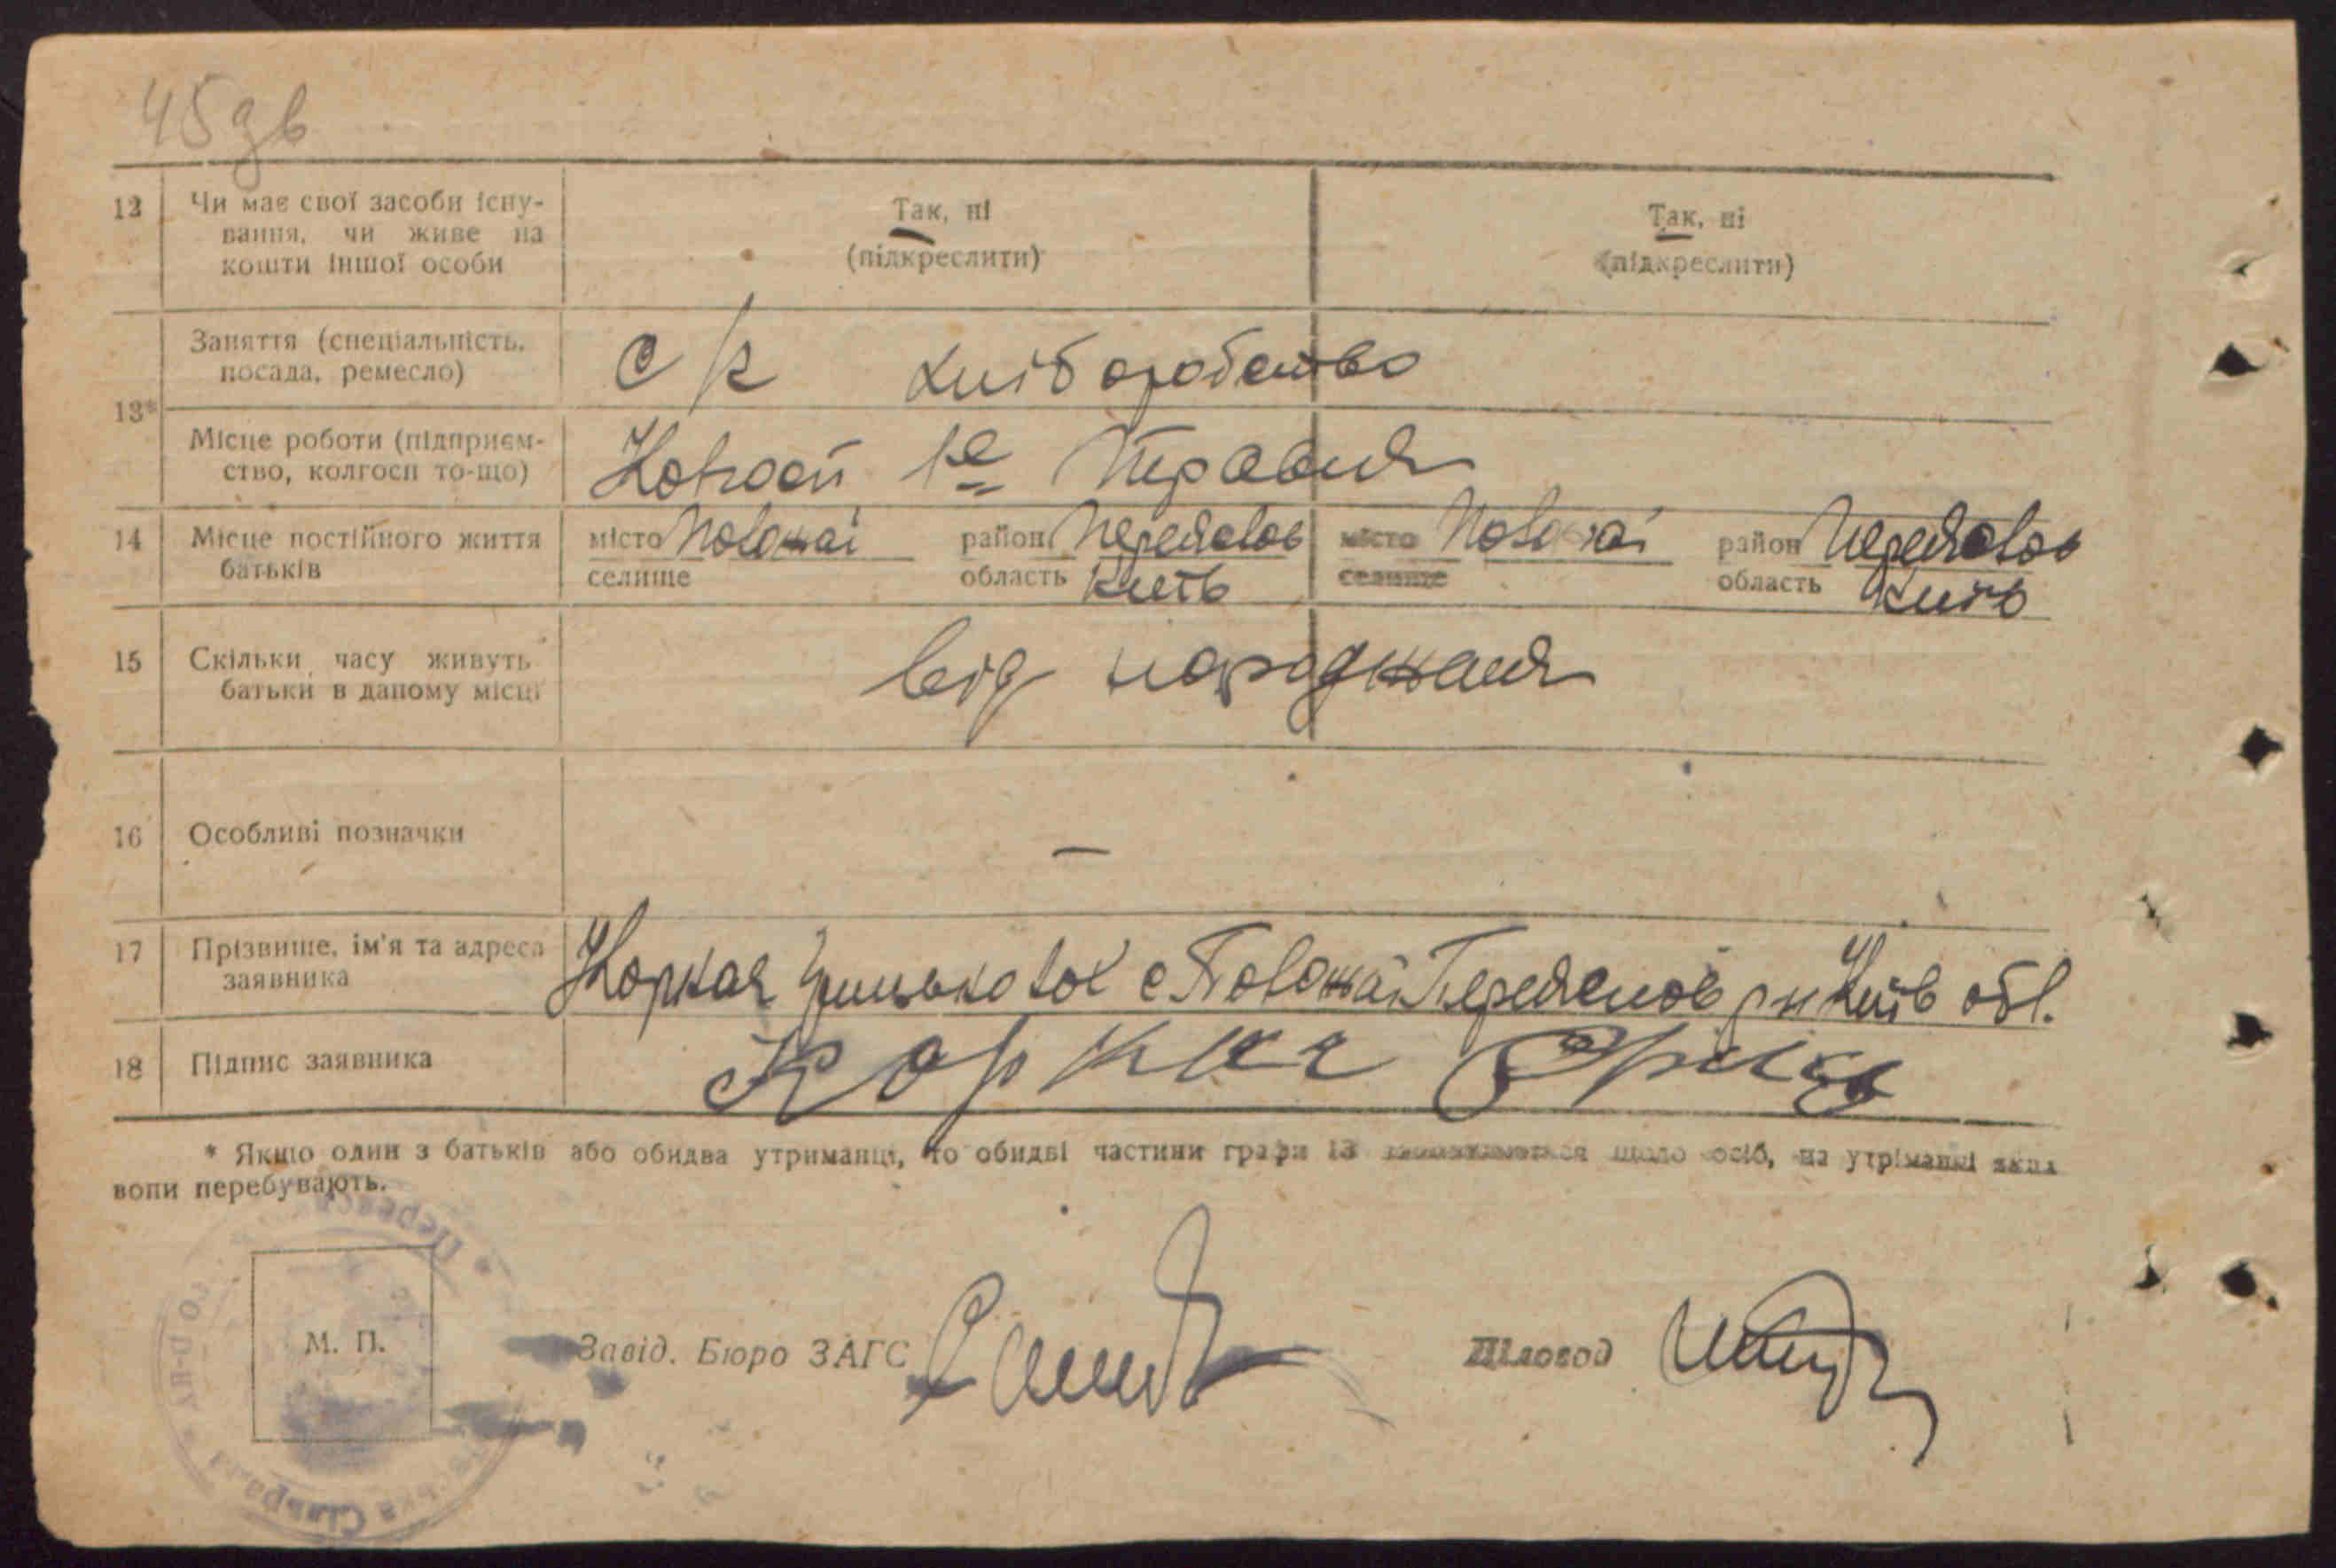 45 зв
12 Чи має свої засоби існу-
вання, чи живе на
кошти іншої особи
Так, ні
(підкреслити)
Так, ні
(підкреслити)
13*
Заняття (спеціальність,
посада, ремесло)
с/г хліборобство
Місце роботи (підприєм-
ство, колгосп то-що)
Колгосп 1е Травня
14 Місце постійного життя
батьків
місто Положаї район Переяслов
селище область Київ
місто Положаї район Переяслов
селище область Київ
15 Скільки часу живуть
батьки в даному місці
від народжаня
16 Особливі позначки
—
17 Прізвище, ім'я та адреса
заявника
с Положаї р н Київ обл.
18 Підпис заявника
* Якщо один з батьків або обидва утриманці, то обидві частини графи 13 щодо осіб, на утріманні яких
вони перебувають.
М. П.
Завід. Бюро ЗАГС
Діловод